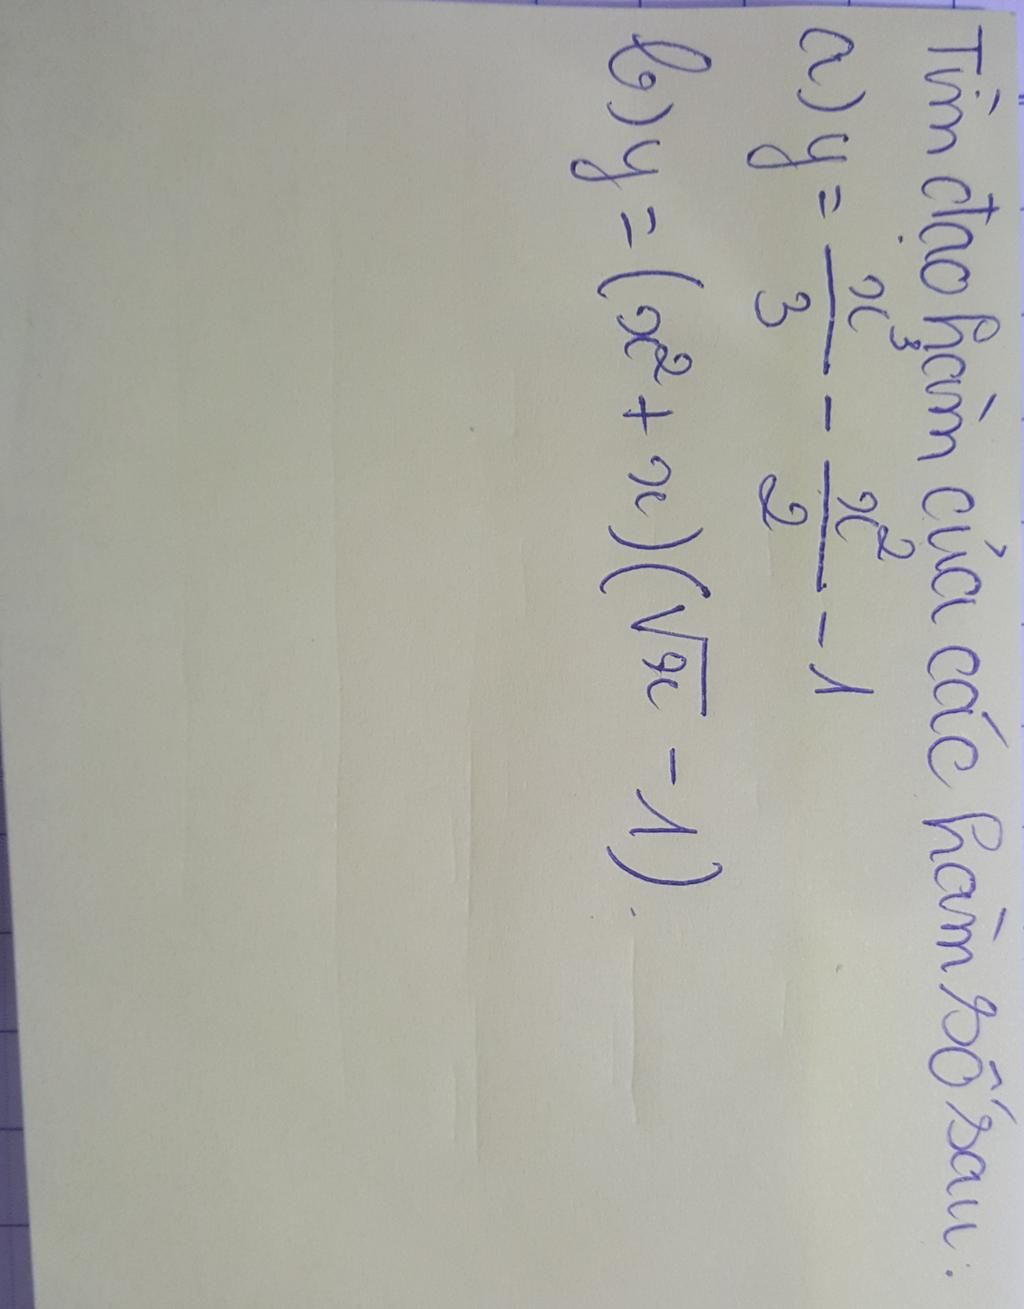 Tìm đạo hàm của các hàm số sau:
a) y = x³/3 - x²/2 - 1
b) y = (x² + x)(√x - 1).